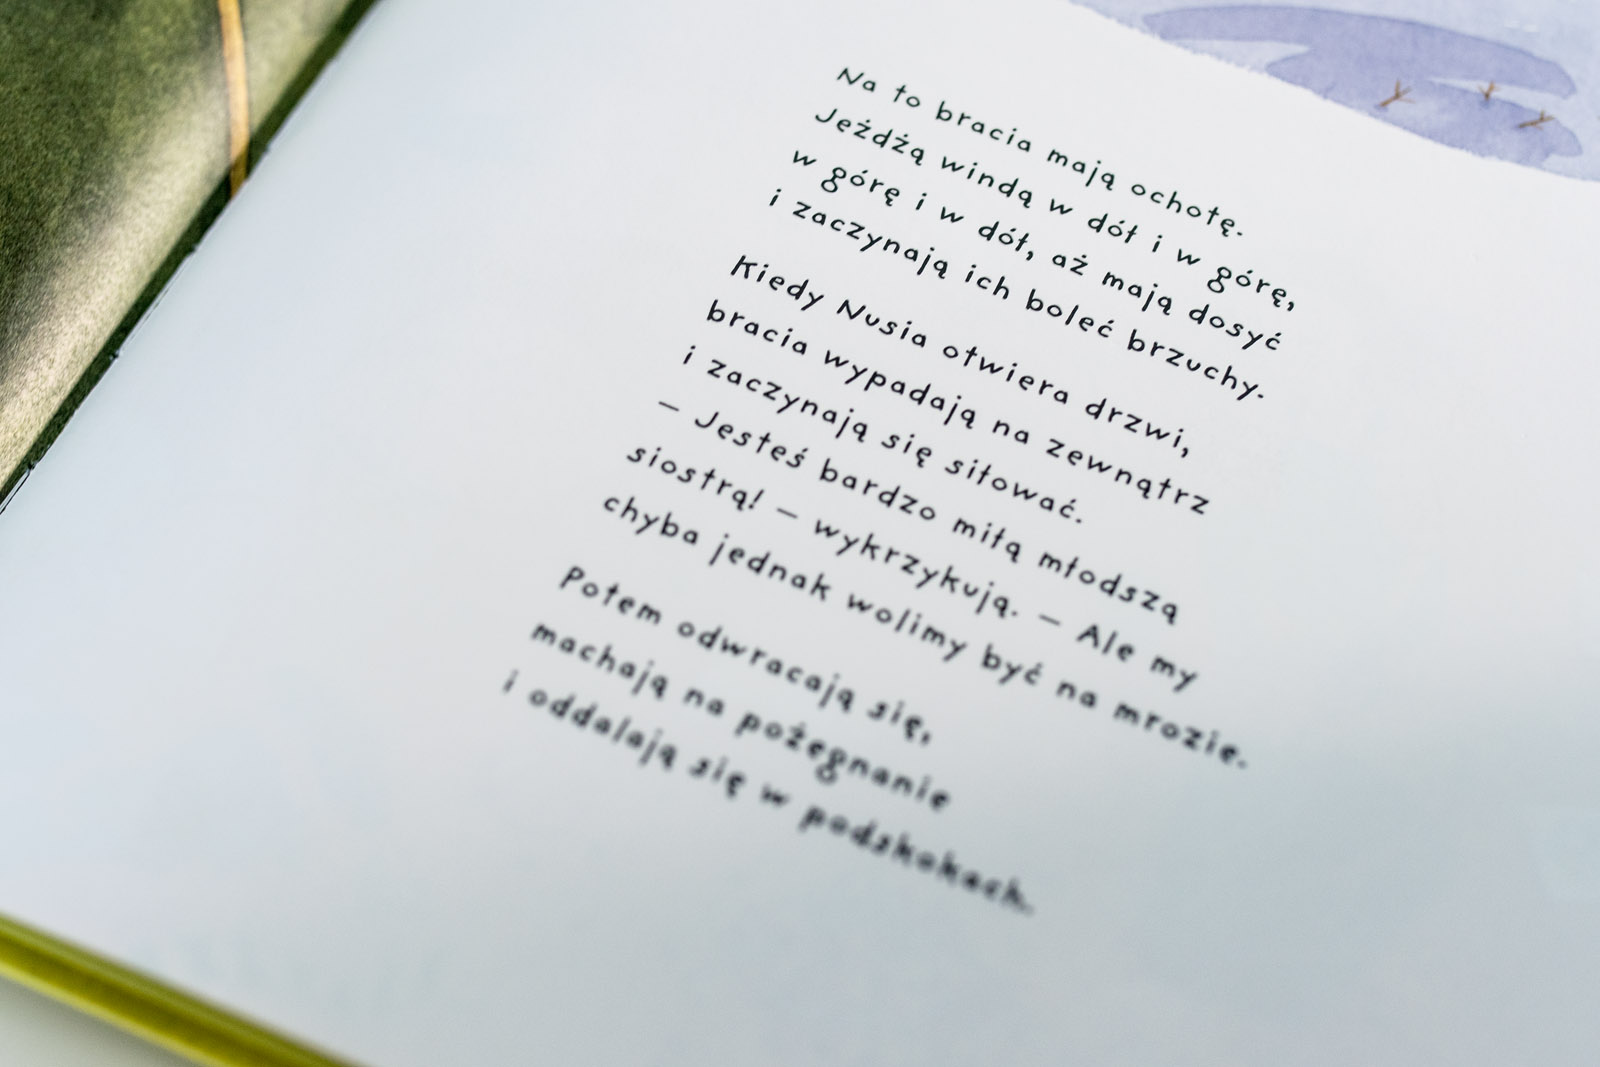 Na to bracia mają ochotę.
Jeżdżą windą w dół i w górę,
w górę i w dół, aż mają dosyć
i zaczynają ich boleć brzuchy.
Kiedy Nusia otwiera drzwi,
bracia wypadają na zewnątrz
i zaczynają się siłować.
– Jesteś bardzo miłą młodszą
siostrą! – wykrzykują. – Ale my
chyba jednak wolimy być na mrozie.
Potem odwracają się,
machają na pożegnanie
i oddalają się w podskokach.